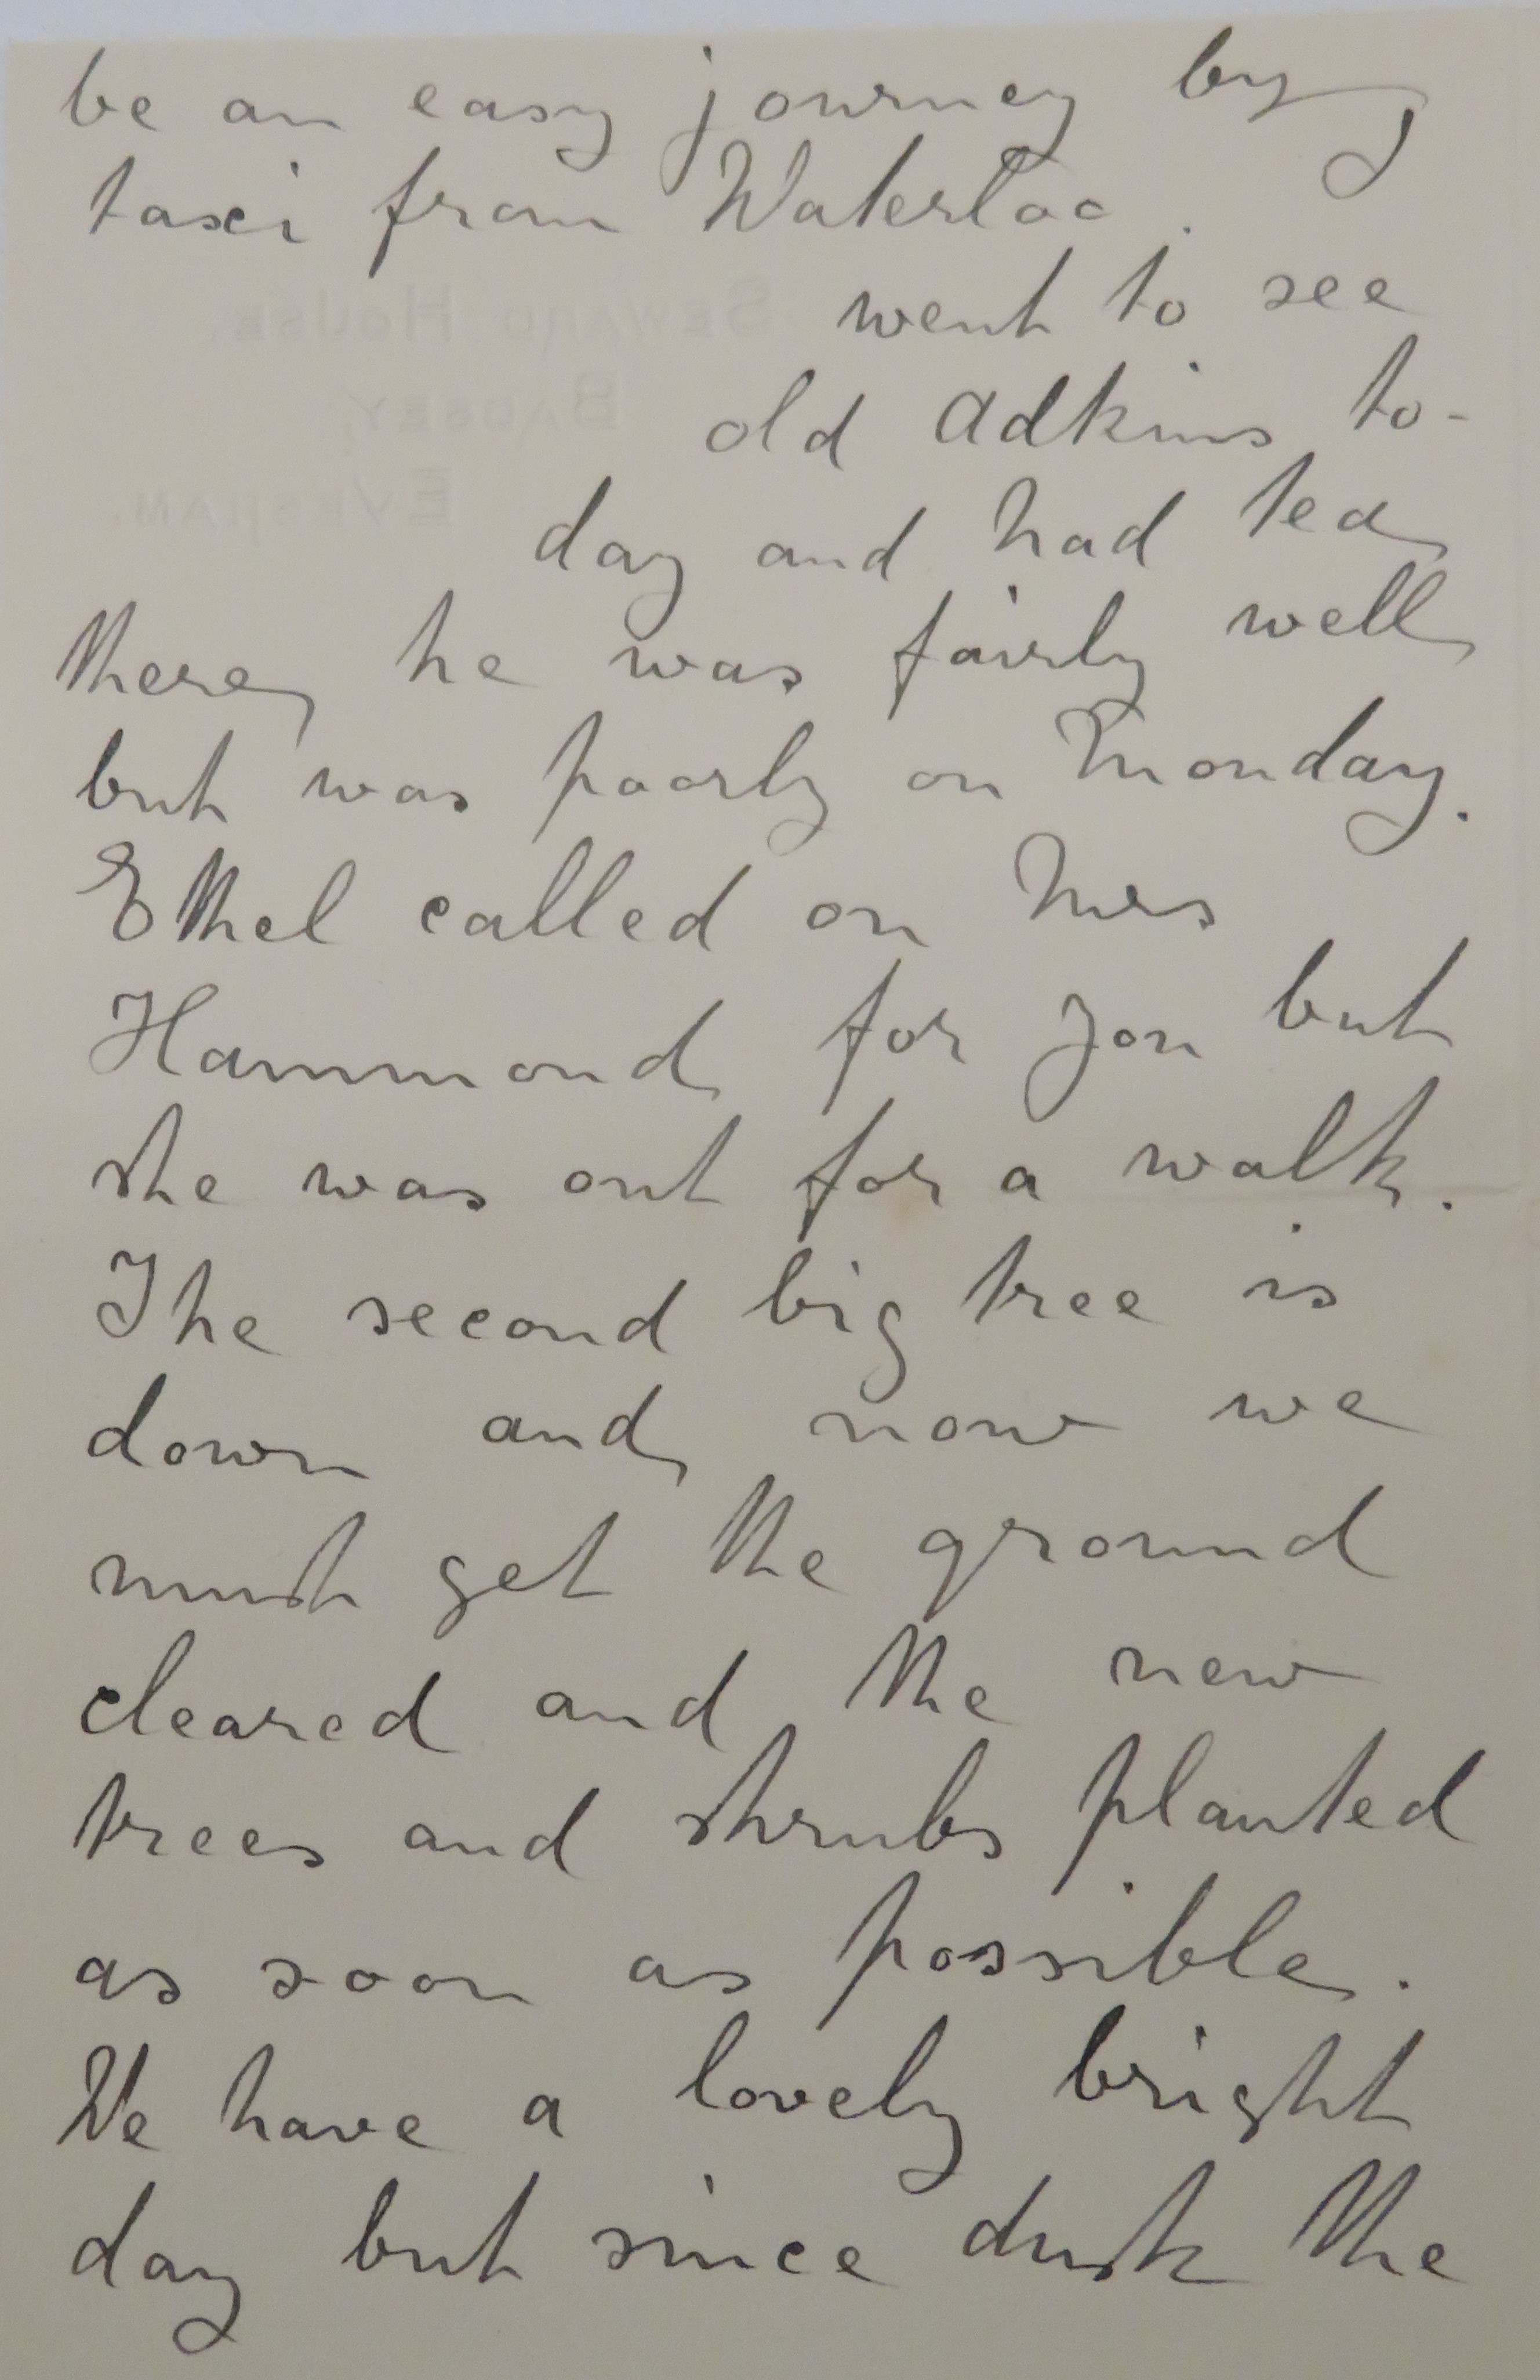 be an easy journey by
taxi from Waterloo.
went to see
old Adkins to-
day and had tea
there, he was fairly well
but was poorly on Monday.
Ethel called on Mrs
Hammond for you but
she was out for a walk.
The second big tree is
down and now we
must get the ground
cleared and the new
trees and shrubs planted
as soon as possible.
We have a lovely bright
day but since dusk the
SEWARD HOUSE,
BADSEY,
EVESHAM.